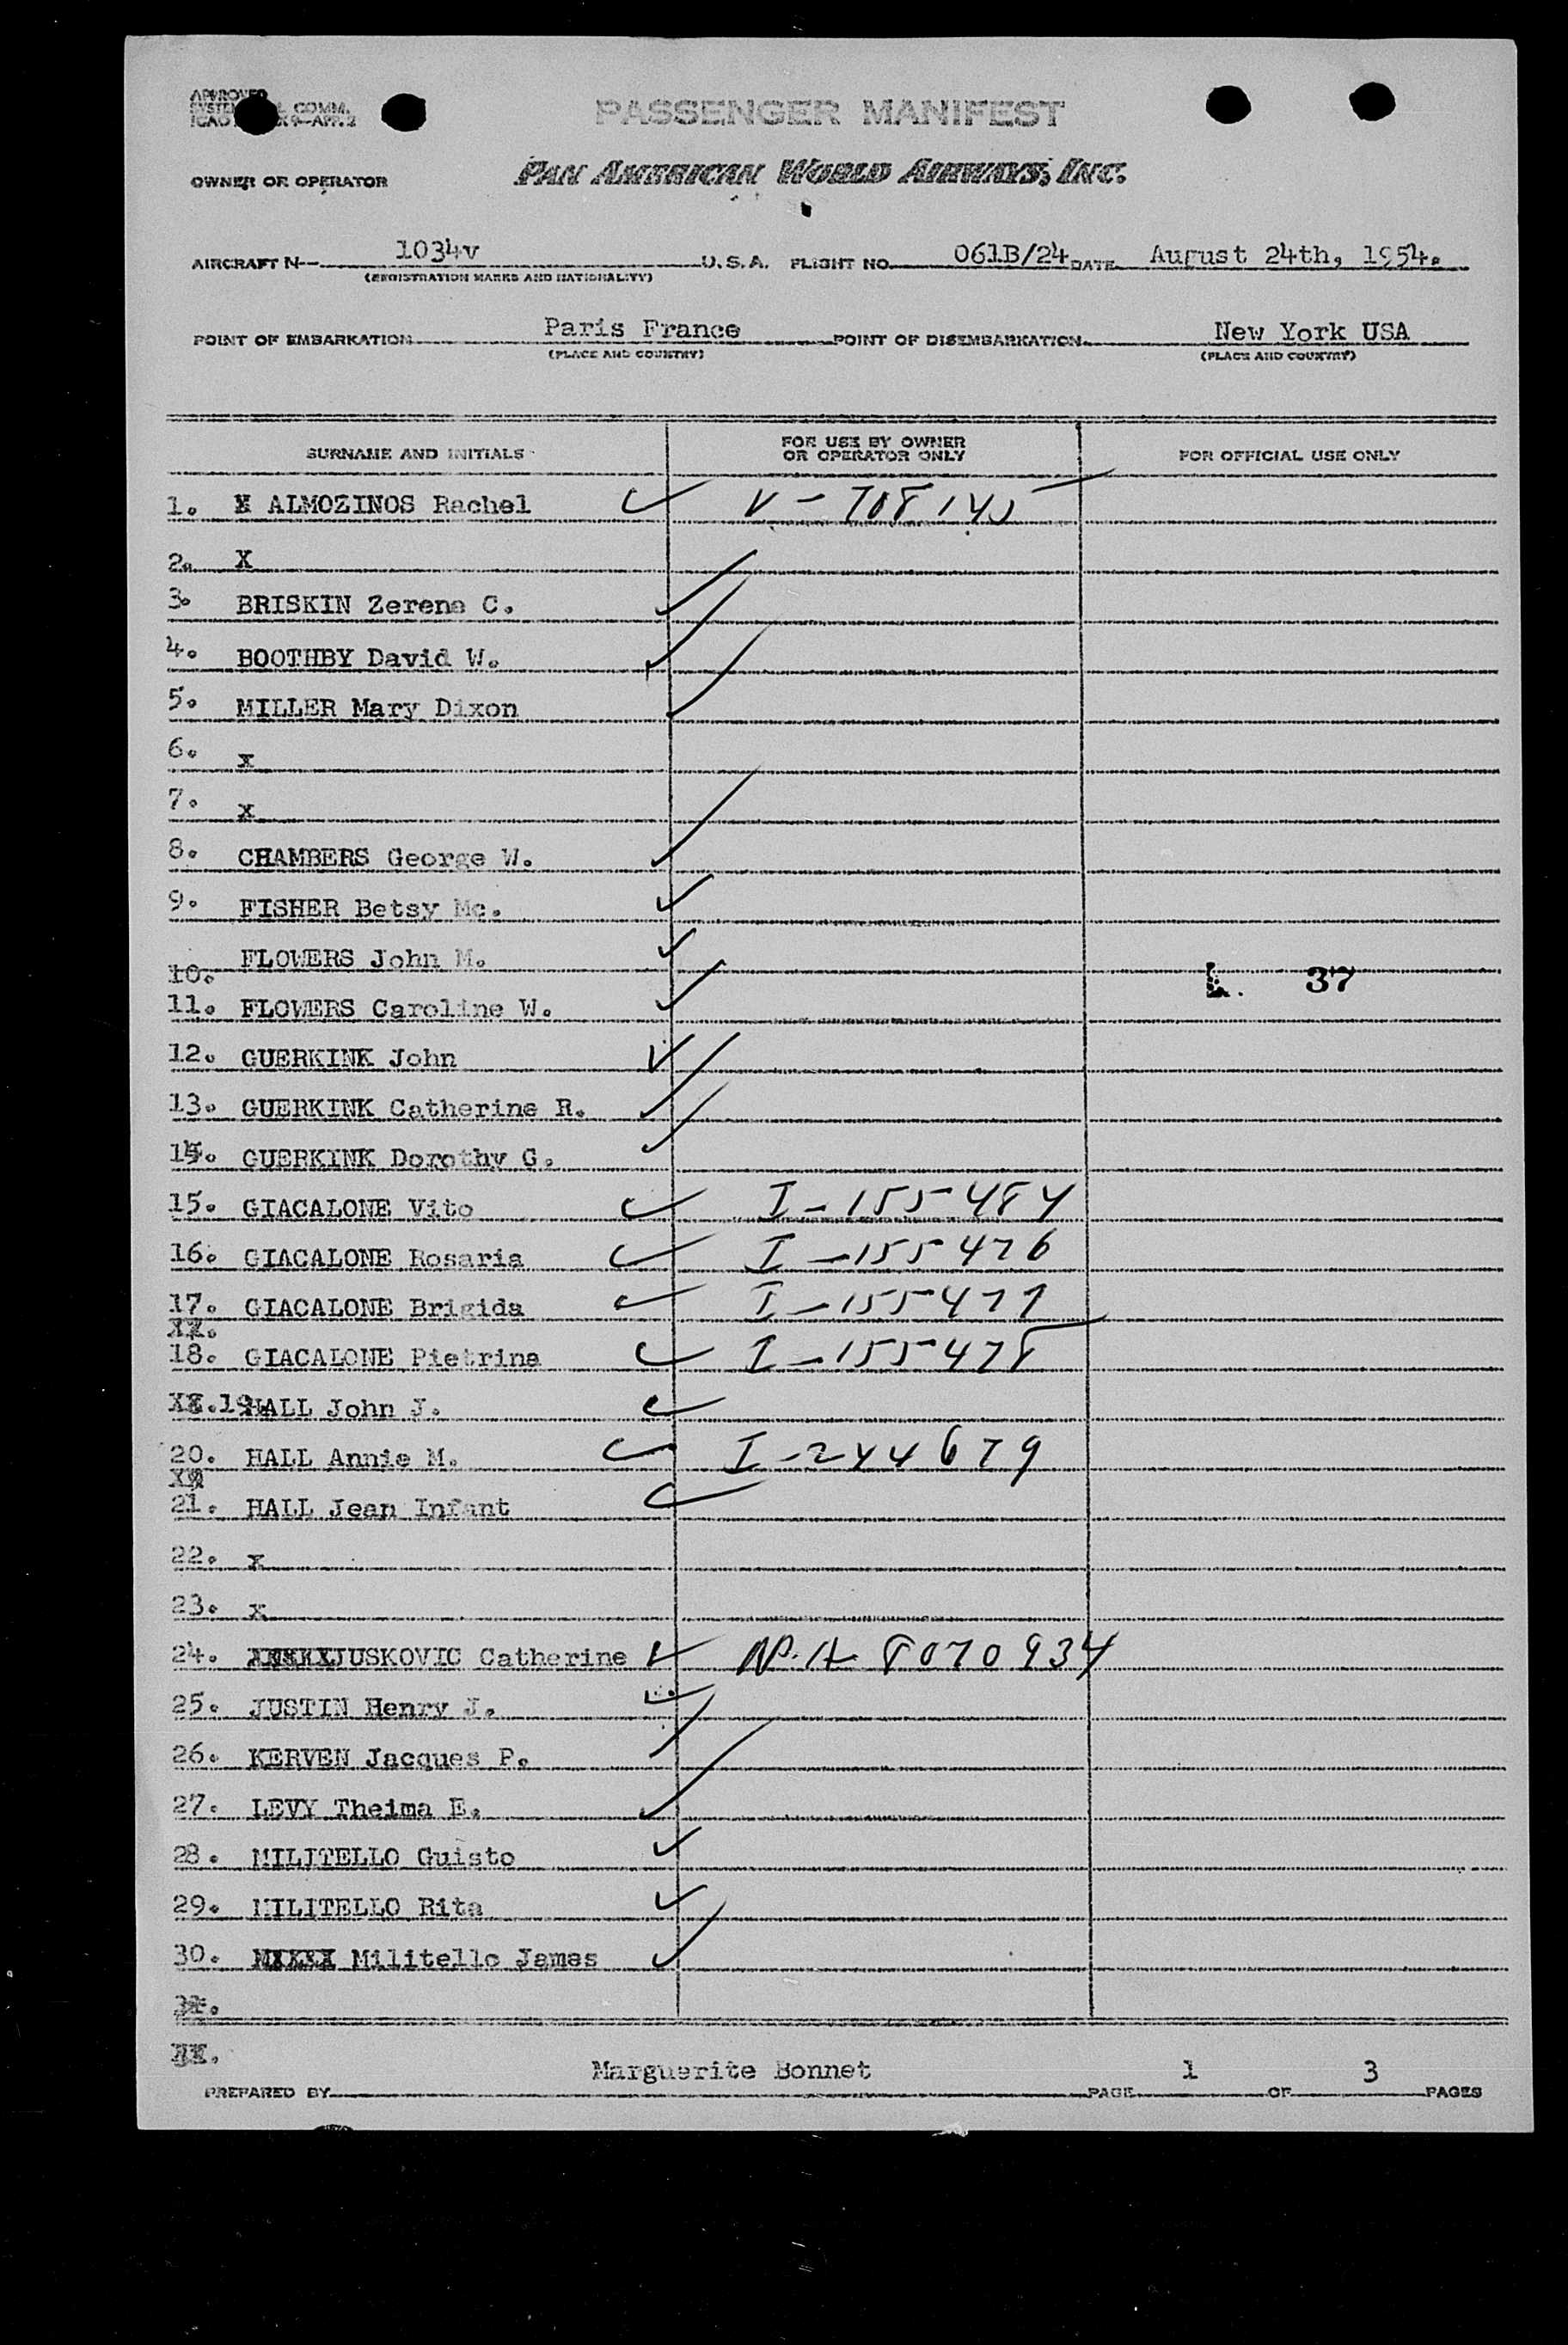 APPROVED
COMM.
PASSENGER MANIFEST
OWNER OR OPERATOR PAN AMERICAN WORLD AIRWAYS, INC.
AIRCRAFT N-- 1034v U.S.A. FLIGHT NO. 061B/24 DATE August 24th, 1954.
(REGISTRATION MARKS AND NATIONALITY)
POINT OF EMBARKATION Paris France POINT OF DISEMBARKATION New York USA
(PLACE AND COUNTRY) (PLACE AND COUNTRY)
SURNAME AND INITIALS FOR USE BY OWNER OR OPERATOR ONLY FOR OFFICIAL USE ONLY
1. X ALMOZINOS Rachel V-708140
2. X
3. BRISKIN Zerena C.
4. BOOTHBY David W.
5. MILLER Mary Dixon
6. x
7. x
8. CHAMBERS George W.
9. FISHER Betsy Mc.
10. FLOWERS John M.
L. 37
11. FLOWERS Caroline W.
12. GUERKINK John
13. GUERKINK Catherine R.
14. GUERKINK Dorothy G.
15. GIACALONE Vito I-155484
16. GIACALONE Rosaria I-155476
17. GIACALONE Brigida I-155477
18. GIACALONE Pietrina I-155478
19. HALL John J.
20. HALL Annie M. I-244679
21. HALL Jean Infant
22. x
23. x
24. JUSKOVIC Catherine 8070934
25. JUSTIN Henry J.
26. KERVEN Jacques P.
27. LEVY Theima E.
28. MILITELLO Guisto
29. MILITELLO Rita
30. Militello James
Marguerite Bonnet 1 3
PREPARED BY PAGE OF PAGES